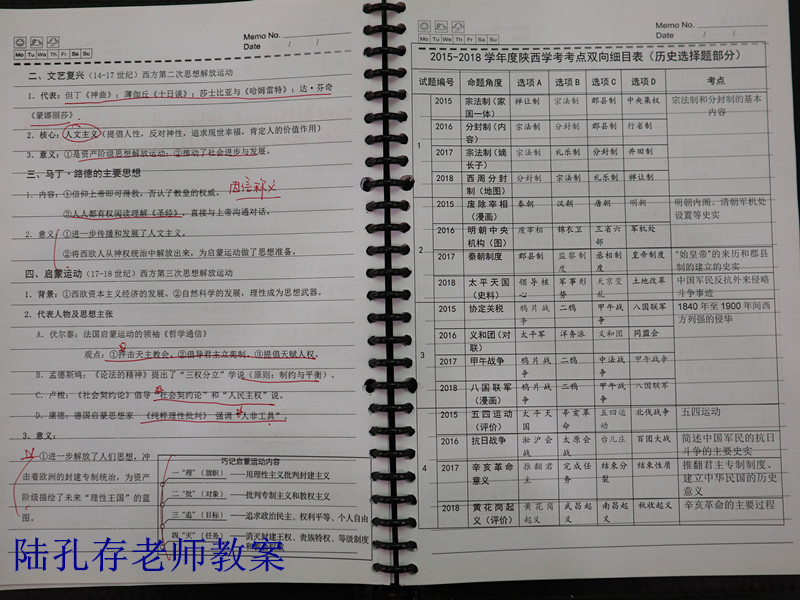 Memo No.
Date / /
Mo Tu We Th Fr Sa Su
二、文艺复兴（14-17世纪）西方第二次思想解放运动
1. 代表：但丁《神曲》；薄伽丘《十日谈》；莎士比亚与《哈姆雷特》；达·芬奇
《蒙娜丽莎》。
2. 核心：人文主义（提倡人性，反对神性，追求现世幸福，肯定人的价值作用）
3. 意义：①是资产阶级思想解放运动；②推动了社会进步与发展。
三、马丁·路德的主要思想
1. 内容：①信仰上帝即可得救，否认了教皇的权威。 因信称义
②人人都有权阅读理解《圣经》，直接与上帝沟通对话。
2. 意义：①进一步传播和发展了人文主义。
②将西欧人从神权统治中解放出来，为启蒙运动做了思想准备。
四、启蒙运动（17-18世纪）西方第三次思想解放运动
1. 背景：①西欧资本主义经济的发展，②自然科学的发展，理性成为思想武器。
2. 代表人物及思想主张
A. 伏尔泰：法国启蒙运动的领袖《哲学通信》
观点：①抨击天主教会。②倡导君主立宪制。③提倡天赋人权。
B. 孟德斯鸠：《论法的精神》提出了“三权分立”学说（原则：制约与平衡）。
C. 卢梭：《社会契约论》倡导“社会契约论”和“人民主权”说。
D. 康德：德国启蒙思想家 《纯粹理性批判》 强调“人非工具”。
3. 意义：
①进一步解放了人们思想，冲
击着欧洲的封建专制统治，为资产
阶级描绘了未来“理性王国”的蓝
图。
巧记启蒙运动内容
一“理”（旗帜）——用理性主义批判封建主义
二“批”（对象）——批判专制主义和教权主义
三“追”（目标）——追求政治民主、权利平等、个人自由
四“灭”（任务）——消灭封建王权、贵族特权、等级制度
陆孔存老师教案
Memo No.
Date / /
Mo Tu We Th Fr Sa Su
2015-2018学年度陕西学考考点双向细目表（历史选择题部分）
试题编号 命题角度 选项A 选项B 选项C 选项D 考点
1
2015 宗法制（家国一体） 禅让制 宗法制 郡县制 中央集权 宗法制和分封制的基本内容
2016 分封制（内容） 宗法制 分封制 郡县制 行省制
2017 宗法制（嫡长子） 宗法制 礼乐制 分封制 井田制
2018 西周分封制（地图） 分封制 宗法制 礼乐制 禅让制
2
2015 废除宰相（漫画） 秦朝 汉朝 唐朝 明朝 明朝内阁、清朝军机处设置等史实
2016 明朝中央机构（图） 废宰相 锦衣卫 三省六部 军机处
2017 秦朝制度 郡县制 监察制度 丞相制度 皇帝制度 “始皇帝”的来历和郡县制的建立的史实
2018 太平天国（史料） 领导核心 军事形势 天京变乱 土地改革 中国军民反抗外来侵略斗争事迹
3
2015 协定关税 鸦片战争 二鸦 甲午战争 八国联军 1840年至1900年间西方列强的侵华
2016 义和团（对联） 太平军 洋务派 义和团 同盟会
2017 甲午战争 鸦片战争 二鸦 中法战争 甲午战争
2018 八国联军（漫画） 鸦片战争 二鸦 甲午战争 八国联军
4
2015 五四运动（评价） 太平天国 辛亥革命 五四运动 北伐战争 五四运动
2016 抗日战争 淞沪会战 太原会战 台儿庄 百团大战 简述中国军民的抗日斗争的主要史实
2017 辛亥革命意义 推翻君主 完成任务 结束分裂 结束性质 推翻君主专制制度、建立中华民国的历史意义
2018 黄花岗起义（评价） 黄花岗起义 武昌起义 南昌起义 秋收起义 辛亥革命的主要过程